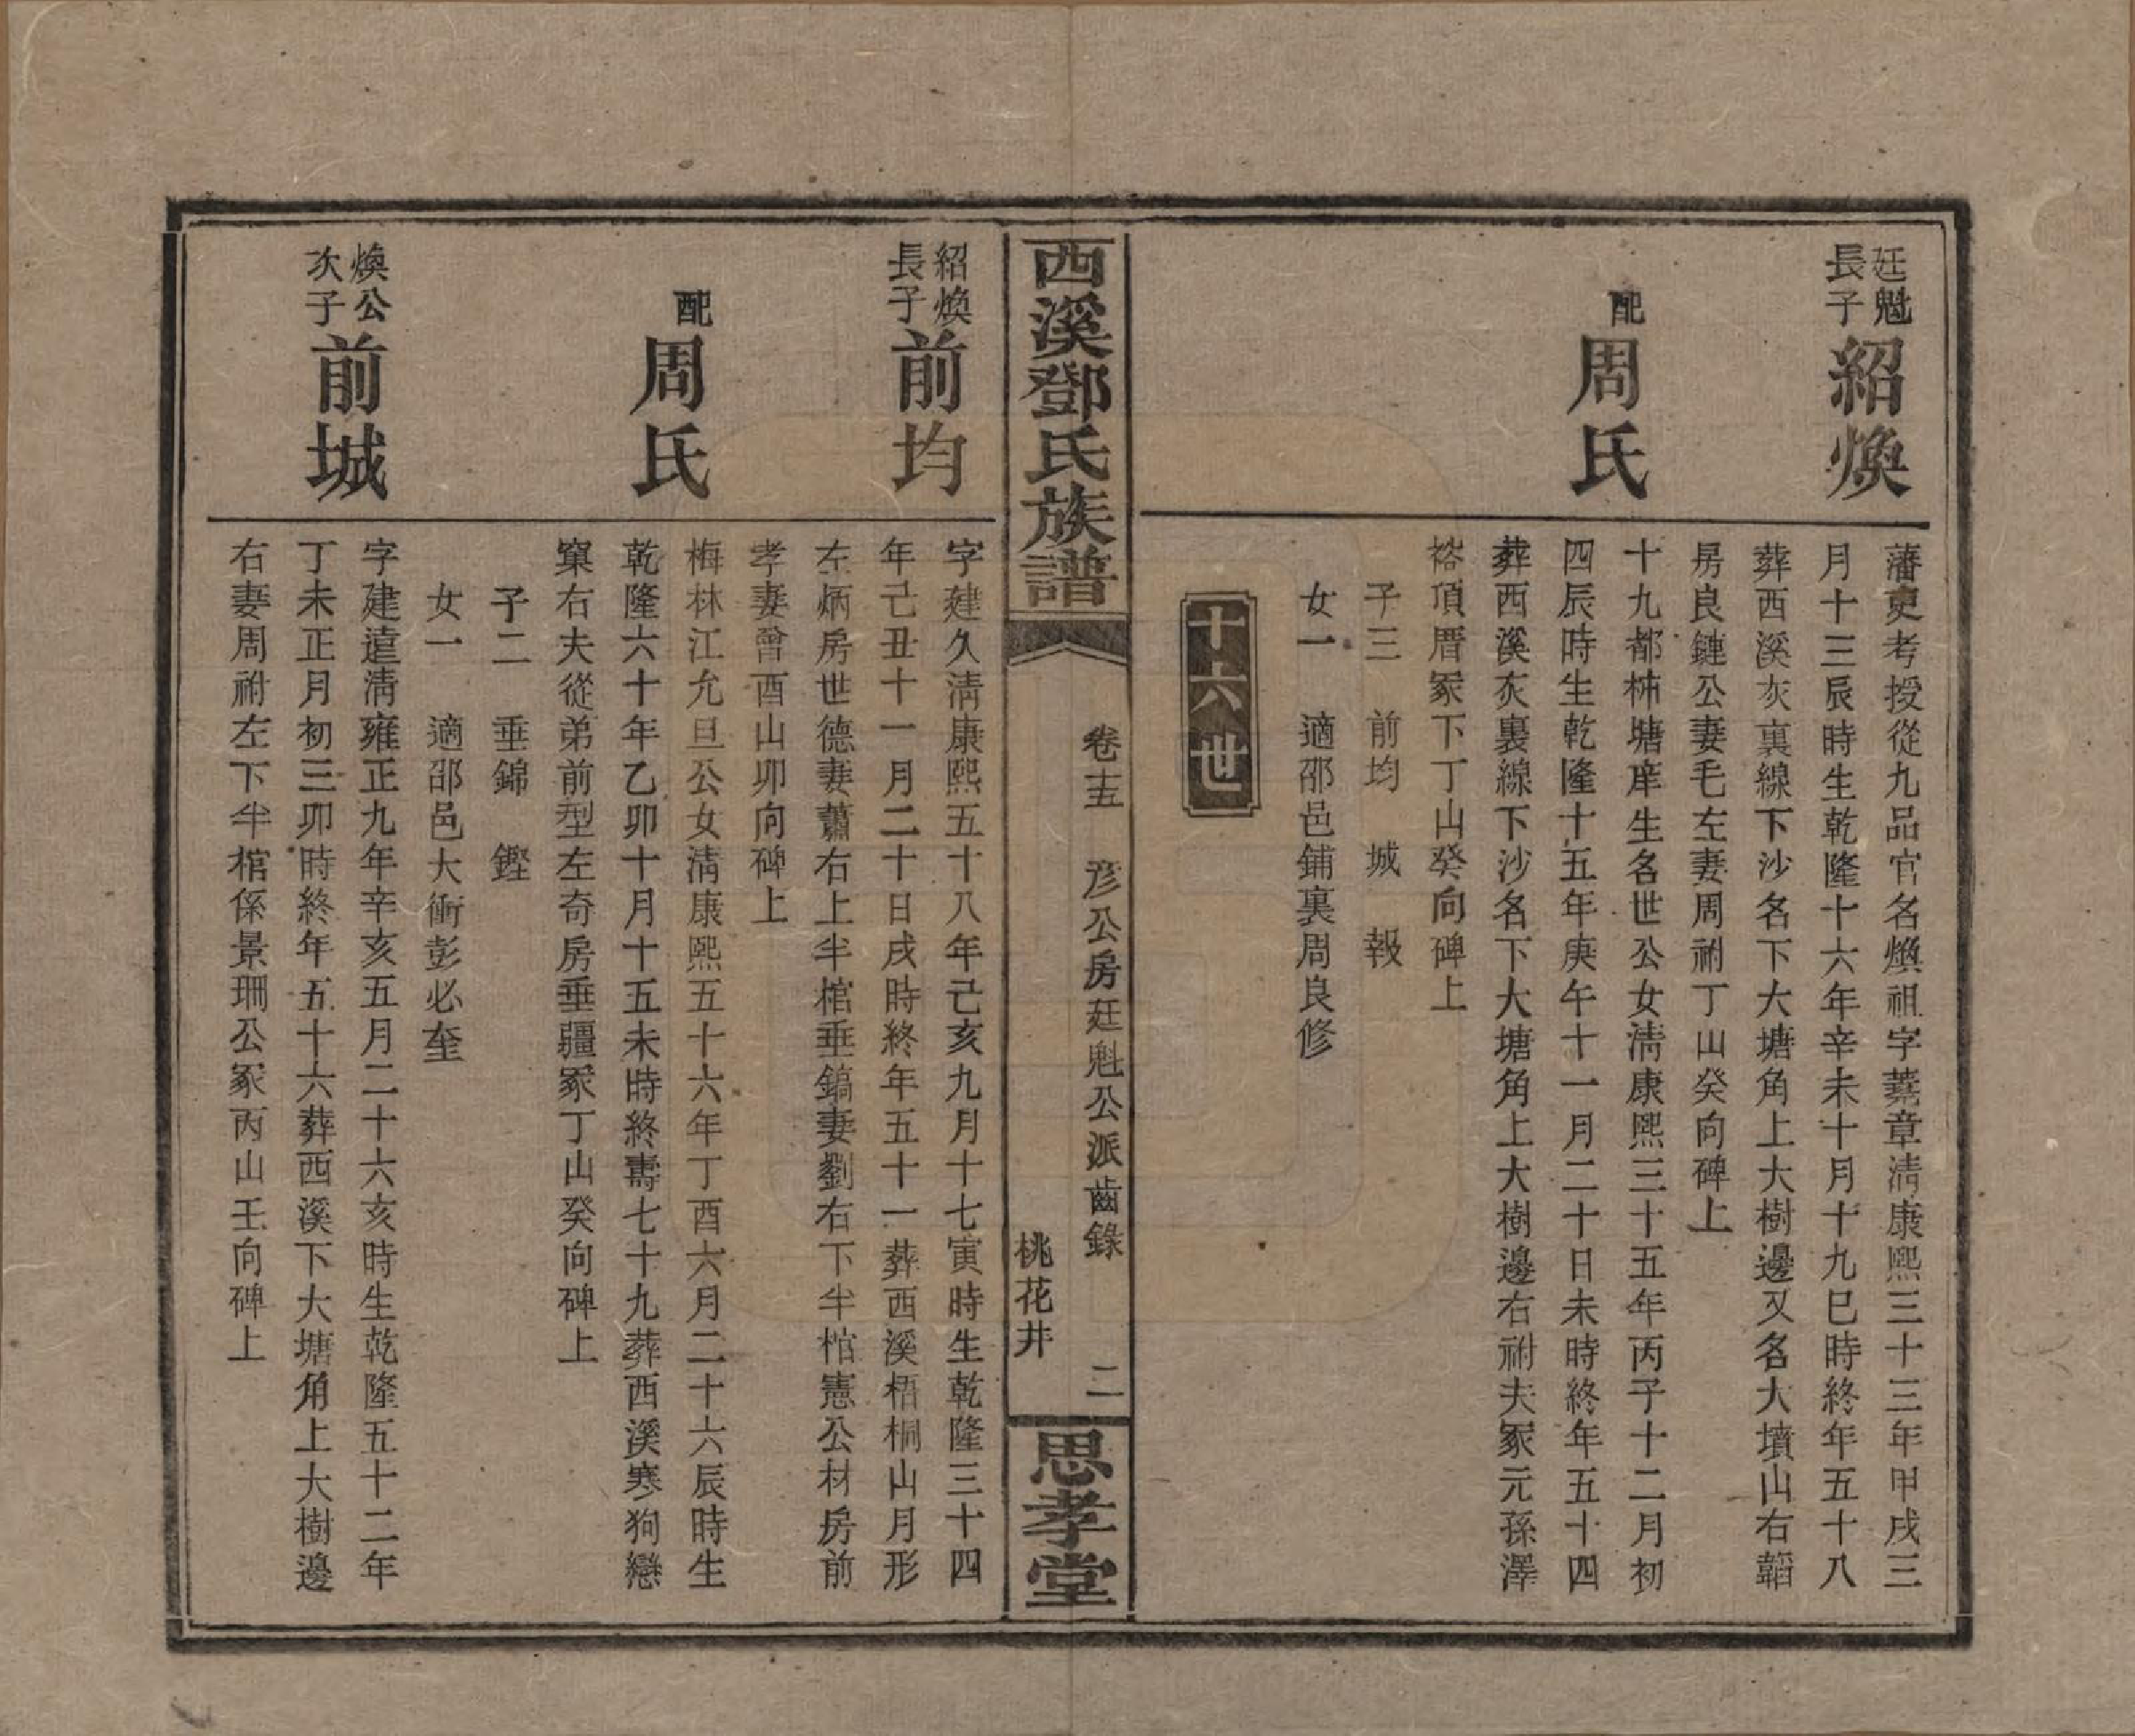 廷魁
長子
紹煥
藩吏考授從九品官名煥祖字蕘章清康熙三十三年甲戌三
月十三辰時生乾隆十六年辛未十月十九巳時終年五十八
葬西溪灰裏線下沙名下大塘角上大樹邊又名大墳山右韜
房良鏈公妻毛左妻周祔丁山癸向碑上
配
周氏
十九都柿塘庠生名世公女清康熙三十五年丙子十二月初
四辰時生乾隆十五年庚午十一月二十日未時終年五十四
葬西溪灰裏線下沙名下大塘角上大樹邊右祔夫冢元孫澤
裕頂厝冢下丁山癸向碑上
子三 前均 城 報
女一 適邵邑鋪裏周良修
十六世
西溪鄧氏族譜
卷十五 彦公房廷魁公派齒錄 二
桃花井
思孝堂
紹煥
長子
前均
字建久清康熙五十八年己亥九月十七寅時生乾隆三十四
年己丑十一月二十日戌時終年五十一葬西溪梧桐山月形
左炳房世德妻蕭右上半棺垂鎬妻劉右下半棺憲公材房前
孝妻曾酉山卯向碑上
配
周氏
梅林江允旦公女清康熙五十六年丁酉六月二十六辰時生
乾隆六十年乙卯十月十五未時終壽七十九葬西溪寒狗戀
窠右夫從弟前型左奇房垂疆冢丁山癸向碑上
子二 垂錦 鏗
女一 適邵邑大衝彭必奎
煥公
次子
前城
字建遠清雍正九年辛亥五月二十六亥時生乾隆五十二年
丁未正月初三卯時終年五十六葬西溪下大塘角上大樹邊
右妻周祔左下半棺係景珊公冢丙山壬向碑上